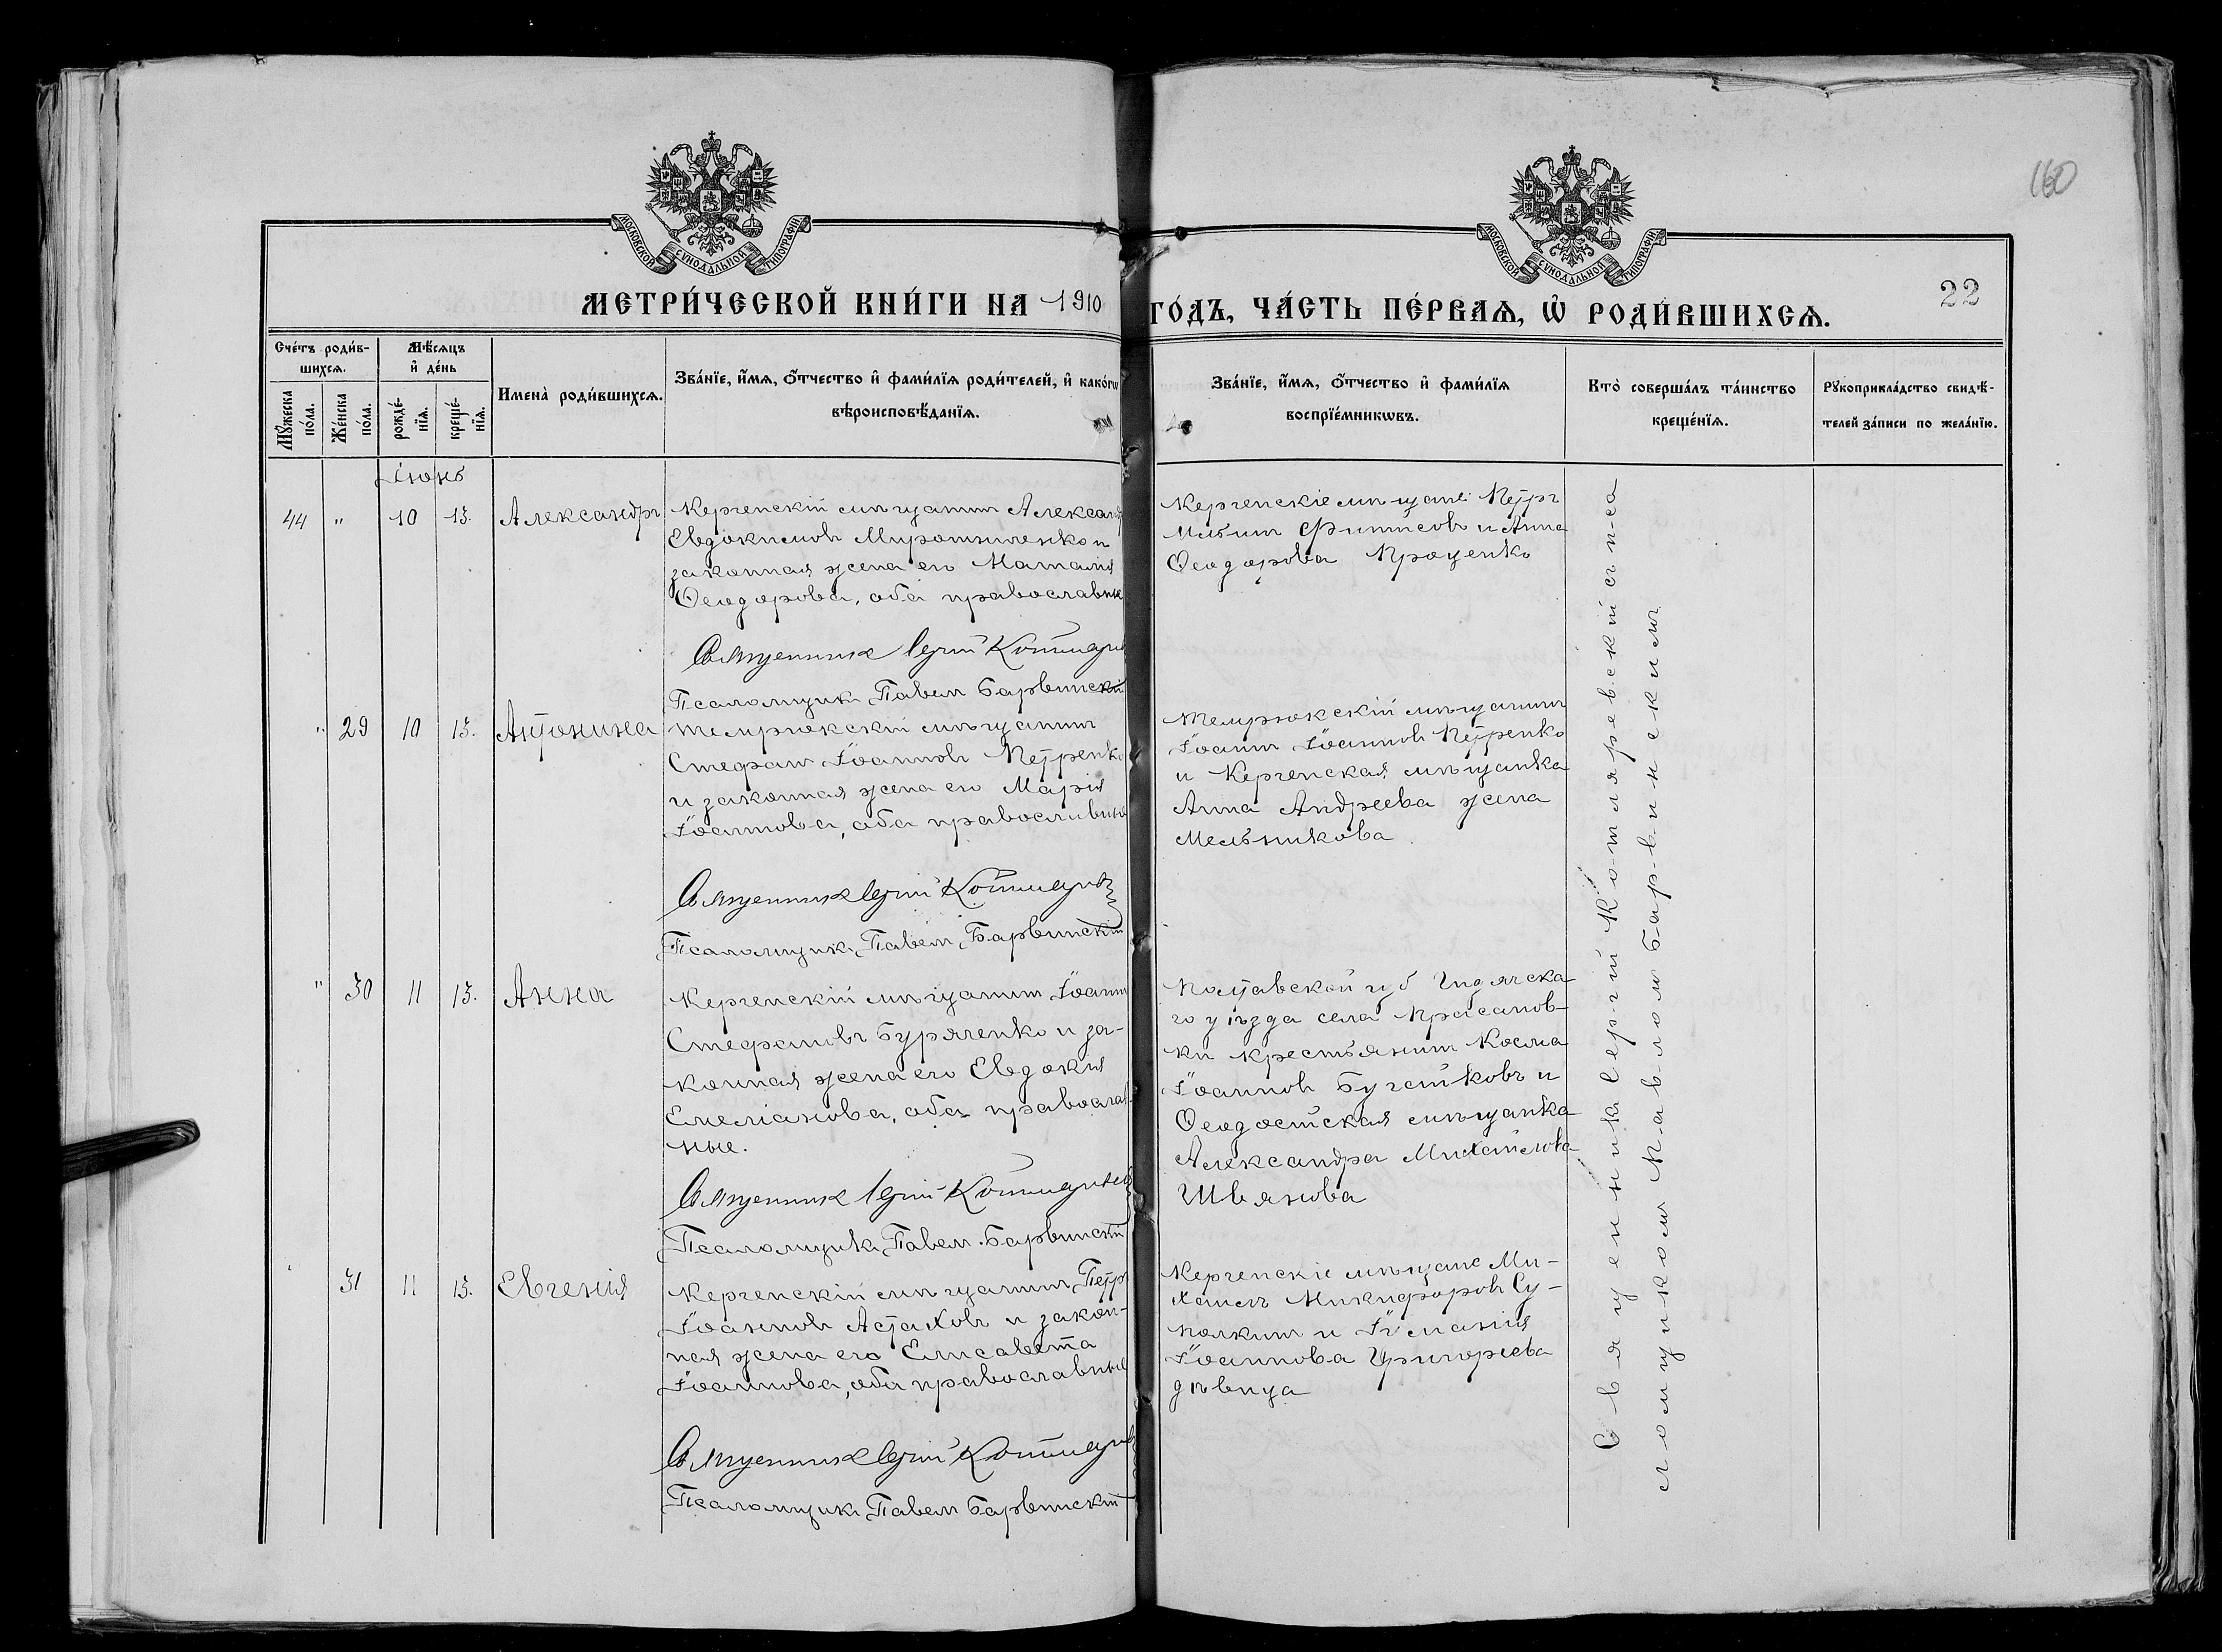 160
МОСКОВСКОЙ СѴНОДАЛЬНОЙ ТИПОГРАФІИ
МОСКОВСКОЙ СѴНОДАЛЬНОЙ ТИПОГРАФІИ
МЕТРИ́ЧЕСКОЙ КНИ́ГИ НА 1910
ГО́ДЪ, ЧА́СТЬ ПЕ́РВАѦ, Ѡ РОДИ́ВШИХСѦ.
22
Сче́тъ роди́в-
шихсѧ.
Мѣ́сѧцъ
и҆ де́нь
Мꙋ́жеска
по́ла.
Же́нска
по́ла.
рожде́-
нїѧ.
креще́-
нїѧ.
Имена̀ роди́вшихсѧ.
Зва́нїе, и҆́мѧ, ѻ҆́тчество и҆ фами́лїѧ роди́телей, и҆ како́гѡ
вѣроисповѣ́данїѧ.
Зва́нїе, и҆́мѧ, ѻ҆́тчество и҆ фами́лїѧ
воспрїе́мникѡвъ.
Кто̀ соверша́лъ та́инство
креще́нїѧ.
Рꙋкоприкла́дство свидѣ́-
телей за́писи по жела́нїю.
Іюнь
44 " 10 13. Александръ
Керченскій мѣщанинъ Александръ
Евдокимовъ Мирошниченко и
законная жена его Наталія
Ѳеодорова, оба православные
Священник Сергій Котляревскій
Псаломщикъ Павелъ Барвинскій
Керченскіе мѣщане: Петръ
Ѳеодорова Проценко
" 29 10 13. Антонина
Темрюкскій мѣщанинъ
Стефанъ Іоанновъ Петренко
и законная жена его Марія
Іоаннова, оба православные
Священник Сергій Котляревскій
Псаломщикъ Павелъ Барвинскій
Темрюкскій мѣщанинъ
Іоаннъ Іоанновъ Петренко
и Керченская мѣщанка
Анна Андреева жена
Мельникова
" 30 11 13. Анна
Керченскій мѣщанинъ Іоаннъ
Стефановъ Буряченко и за-
конная жена его Евдокія
Емеліанова, оба православ-
ные.
Священник Сергій Котляревскій
Псаломщикъ Павелъ Барвинскій
Полтавской губ. Гадячска-
го уѣзда села
ки крестьянинъ Косма
Іоанновъ и
Ѳеодосійская мѣщанка
Александра Михайлова
Швянова
31 11 13. Евгенія
Керченскій мѣщанинъ Петръ
Іоанновъ Астаховъ и закон-
ная жена его Елисавета
Іоаннова, оба православные
Священник Сергій Котляревскій
Псаломщикъ Павелъ Барвинскій
Керченскіе мѣщане Ми-
хаилъ Никифоровъ Су-
полкинъ и
Іоаннова Григорьева
дѣвица
Священникъ Сергій Котляревскій съ пса-
ломщикомъ Павломъ Барвинскимъ